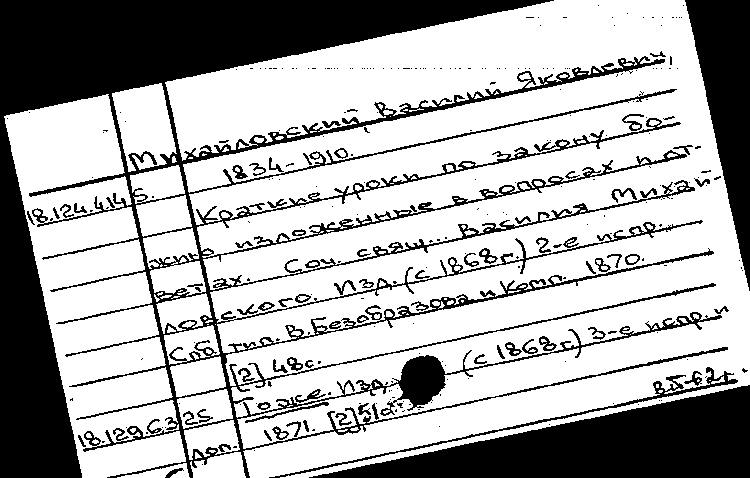 Михайловский, Василий Яковлевич,
1834-1910.
18.124.414 S. Краткие уроки по закону бо-
жию, изложенные в вопросах и от-
ветах. Соч. свящ... Василия Михай-
ловского. Изд. (с 1868 г.) 2-е испр.
Спб. тип. В. Безобразова и Комп., 1870.
[2], 48 с.
18.129.6.3 Тоже. Изд. (с 1868 г.) 3-е испр. и
доп. 1871. [2]